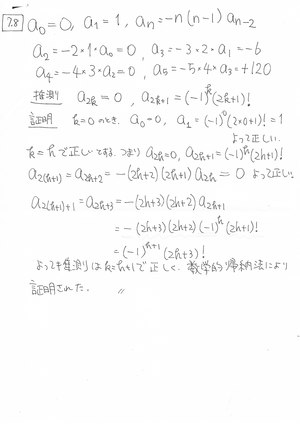 7.8 a₀=0, a₁=1, aₙ=-n(n-1)aₙ₋₂
a₂=-2×1×a₀=0, a₃=-3×2×a₁=-6
a₄=-4×3×a₂=0, a₅=-5×4×a₃=+120
推測 a₂ₖ=0, a₂ₖ₊₁=(-1)ᵏ(2k+1)!
証明 k=0のとき. a₀=0, a₁=(-1)⁰(2×0+1)!=1
よって正しい.
k=hで正しいとする. つまり a₂ₕ=0, a₂ₕ₊₁=(-1)ʰ(2h+1)!
a₂₍ₕ₊₁₎=a₂ₕ₊₂=-(2h+2)(2h+1)a₂ₕ=0 よって正しい
a₂₍ₕ₊₁₎₊₁=a₂ₕ₊₃=-(2h+3)(2h+2)a₂ₕ₊₁
=-(2h+3)(2h+2)(-1)ʰ(2h+1)!
=(-1)ʰ⁺¹(2h+3)!
よっても推測はk=h+1で正しく. 数学的帰納法により
証明された. 〃